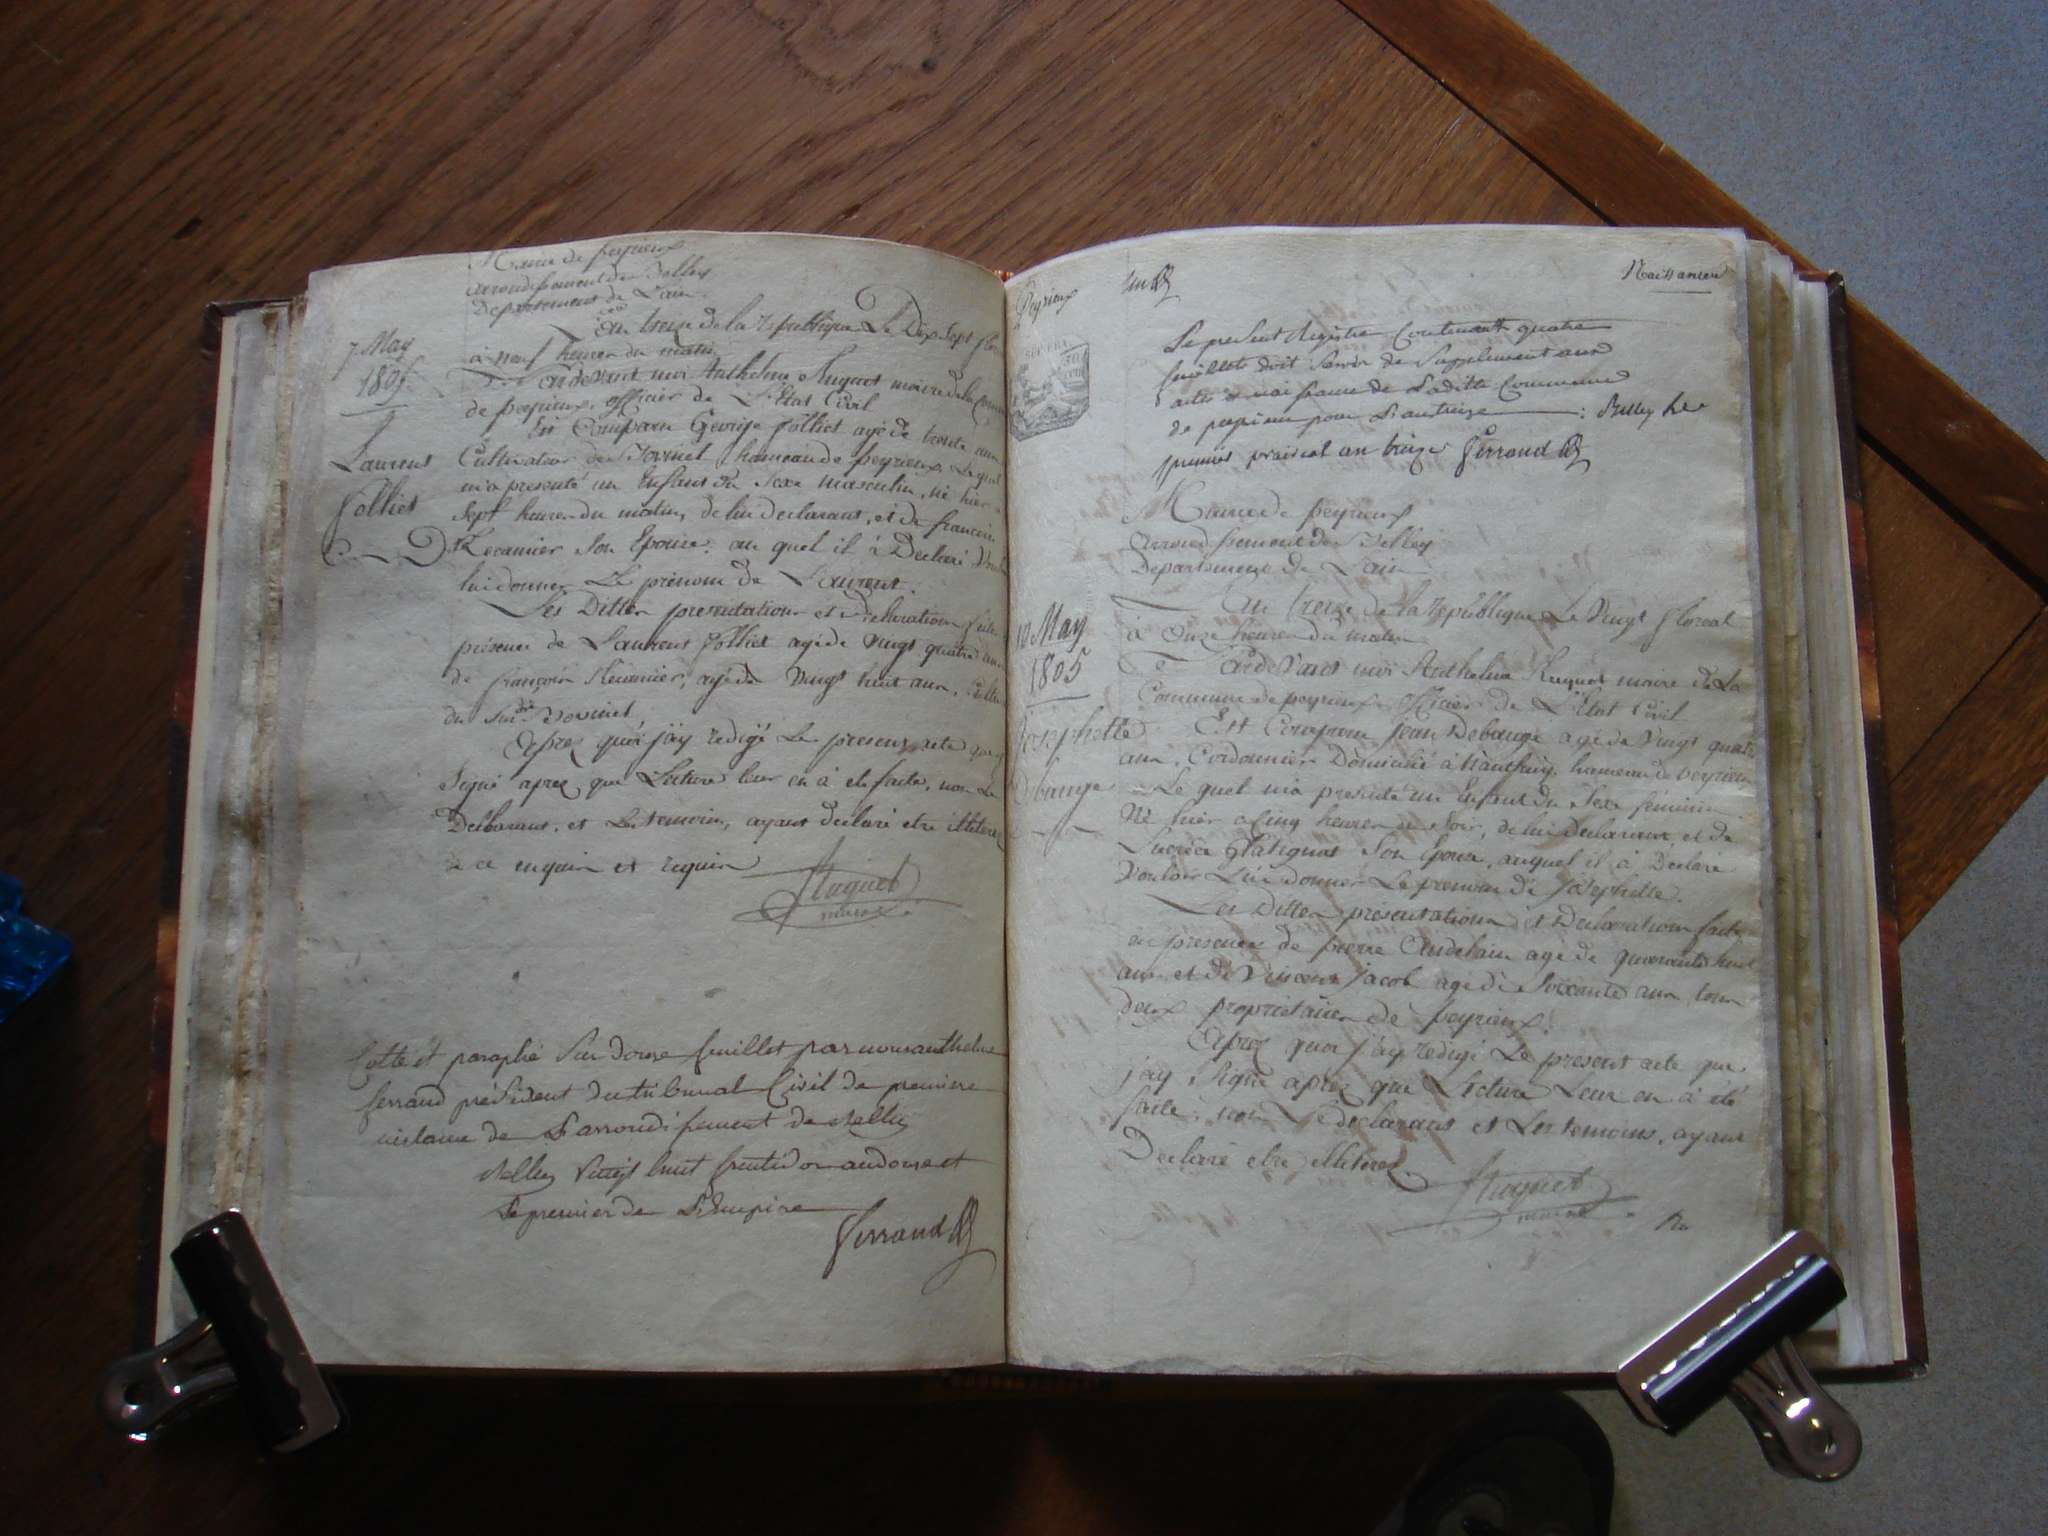 Mairie de peyrieux
arrondissement de Belley
Departement de L'ain
7 May
1805
Laurent
Jolliet
L'an treize de la Republique Le Dix Sept floreal
à neuf heures du matin
Pardevant moi Anthelme Huguet maire de la Commune
de peyrieux, officier de L'Etat Civil
Est Comparu George Jolliet agé de trente ans
Cultivateur de hameau de peyrieux, Le quel
m'a presenté un Enfant du Sexe masculin, né hier à
Sept heures du matin, de lui declarant, et de francoise
Recamier Son Epouse, au quel il à Declaré Vouloir
lui donner Le prénom de Laurent.
Les Dittes presentation et Declaration faites en
présence de Laurent Jolliet agé de Vingt quatre ans
de françois Récamier, agé de Vingt huit ans,
du Sudit
Aprez quoi j'ay redigé Le present acte que j'ay
Signé aprez que Lecture leur en à eté faite, non Le
Declarant, et Les temoins, ayant declaré etre illiterez
de ce enquis et requis
Huguet
maire
Cotté et paraphé Sur douze feuillets par nous anthelme
ferrand président du tribunal Civil de premiere
instance de L'arrondissement de Belley
Belley Vingt huit fructidor an douze et
Le premier de L'Empire
Ferrand
Peyrieux
Naissances
Le present Registre Contenant quatre
feuillets doit Servir de Supplement aux
actes de naissance de Laditte Commune
de peyrieux pour L'an treize : Belley le
premier prairial an treize Ferrand
Mairie de peyrieux
Arrondissement de Belley
Departement de L'ain
10 May
1805
Josephette
Debauge
L'an treize de la Republique Le Vingt floreal
à Onze heures du matin
Pardevant moi Anthelme Huguet maire de La
Commune de peyrieux officier de L'Etat Civil
Est Comparu Jean Debauge agé de Vingt quatre
ans, Cordonnier Domicilié à hameau de peyrieux
Le quel m'a presenté un Enfant du Sexe féminin
Né hier à Cinq heures du Soir, de lui declarant, et de
Son Epouse, auquel il à Declaré
Vouloir Lui donner Le prenom de Josephette.
Les Dittes présentation et Declaration faites
en presence de pierre agé de quarante huit
ans et de Vincent Jacob agé de Soixante ans tous
deux proprietaires de peyrieux.
Aprez quoi j'ay redigé Le present acte que
j'ay Signé aprez que Lecture Leur en à été
faite, non Le declarant et Les temoins, ayant
Declaré etre illiterez.
Huguet
maire